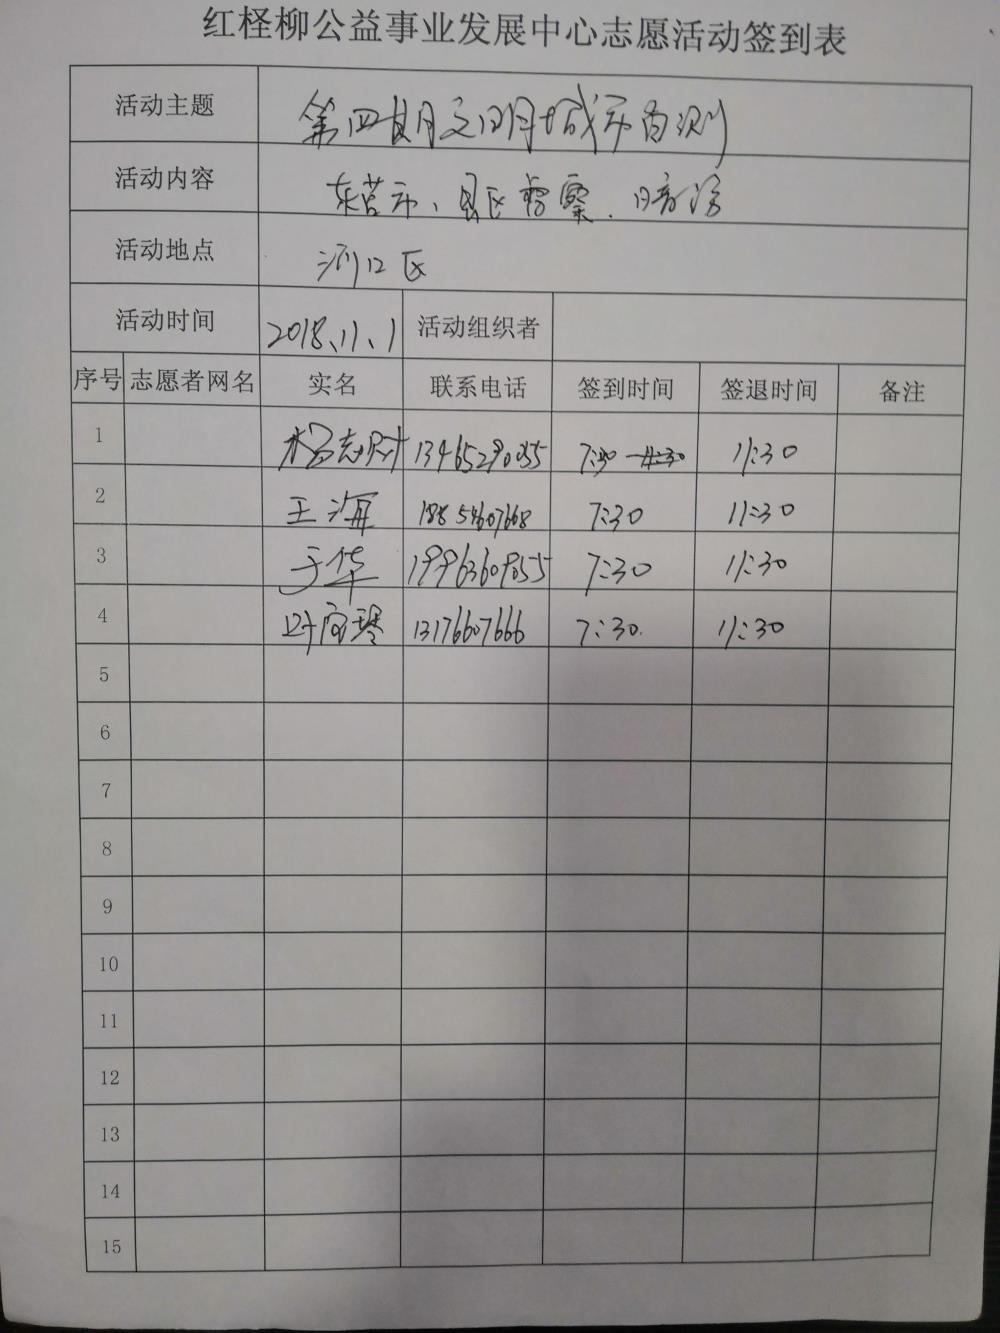 红柽柳公益事业发展中心志愿活动签到表
活动主题 第四期文明城市自测
活动内容 东营市、县区督察、暗访
活动地点 河口区
活动时间 2018、11、1 活动组织者
序号 志愿者网名 实名 联系电话 签到时间 签退时间 备注
1 13465290055 7:30 11:30
2 王海 18854607668 7:30 11:30
3 于华 19963609055 7:30 11:30
4 13176607666 7:30 11:30
5
6
7
8
9
10
11
12
13
14
15